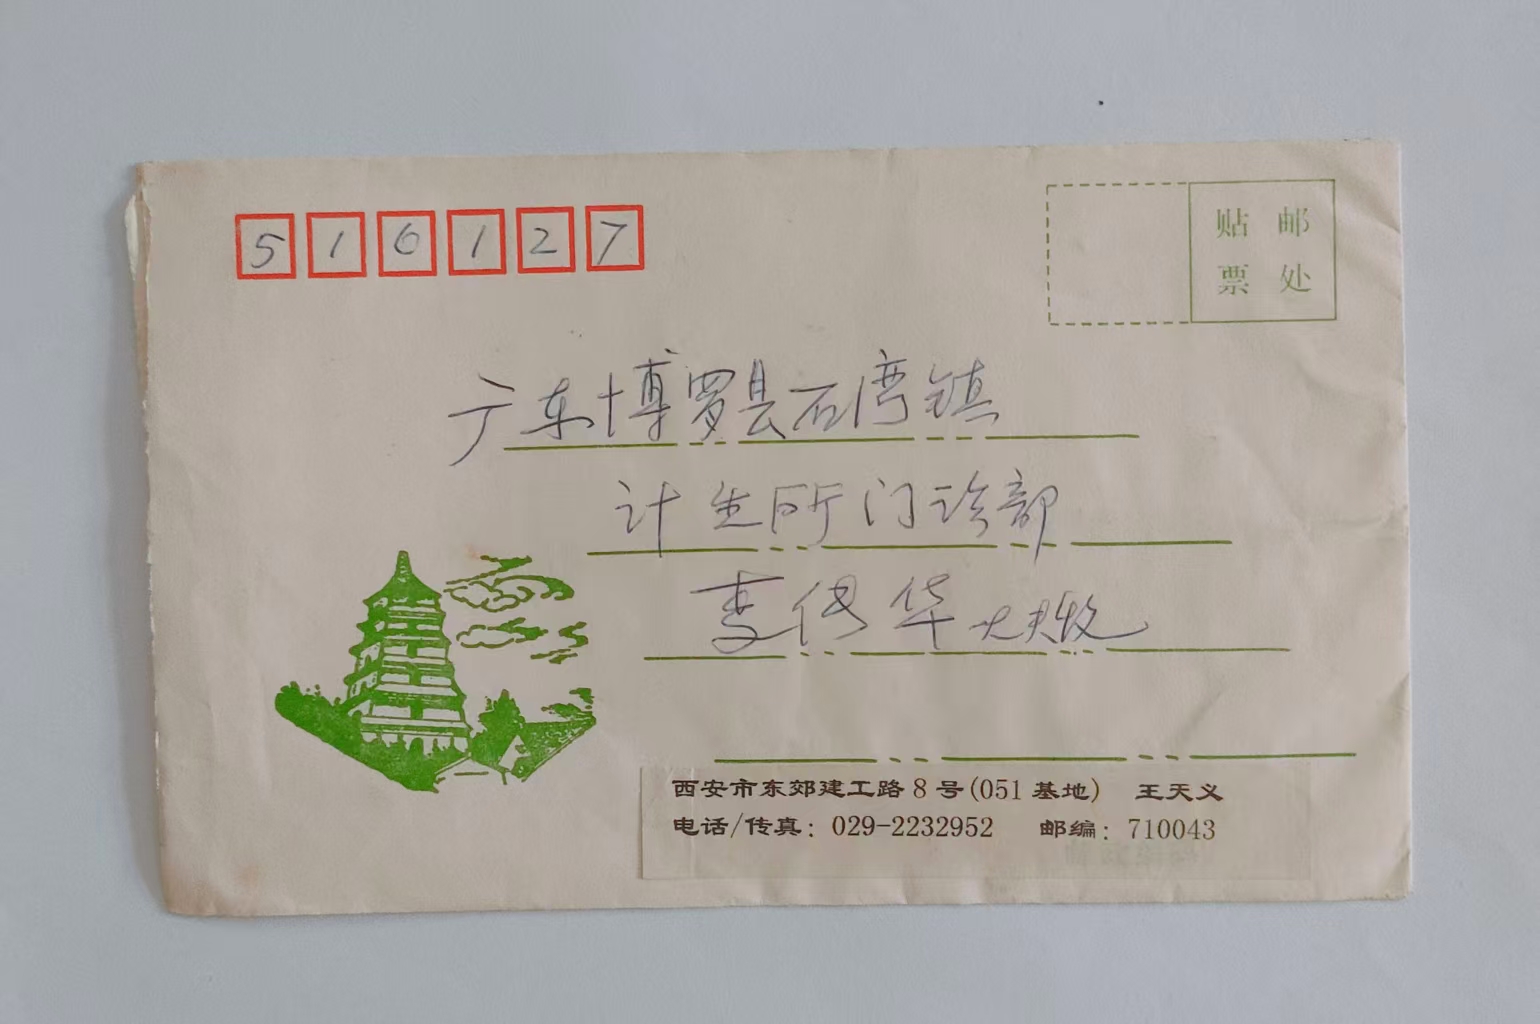 516127
贴邮
票处
广东博罗县石湾镇
计生所门诊部
李传华大夫收
西安市东郊建工路8号(051基地) 王天义
电话/传真：029-2232952 邮编：710043